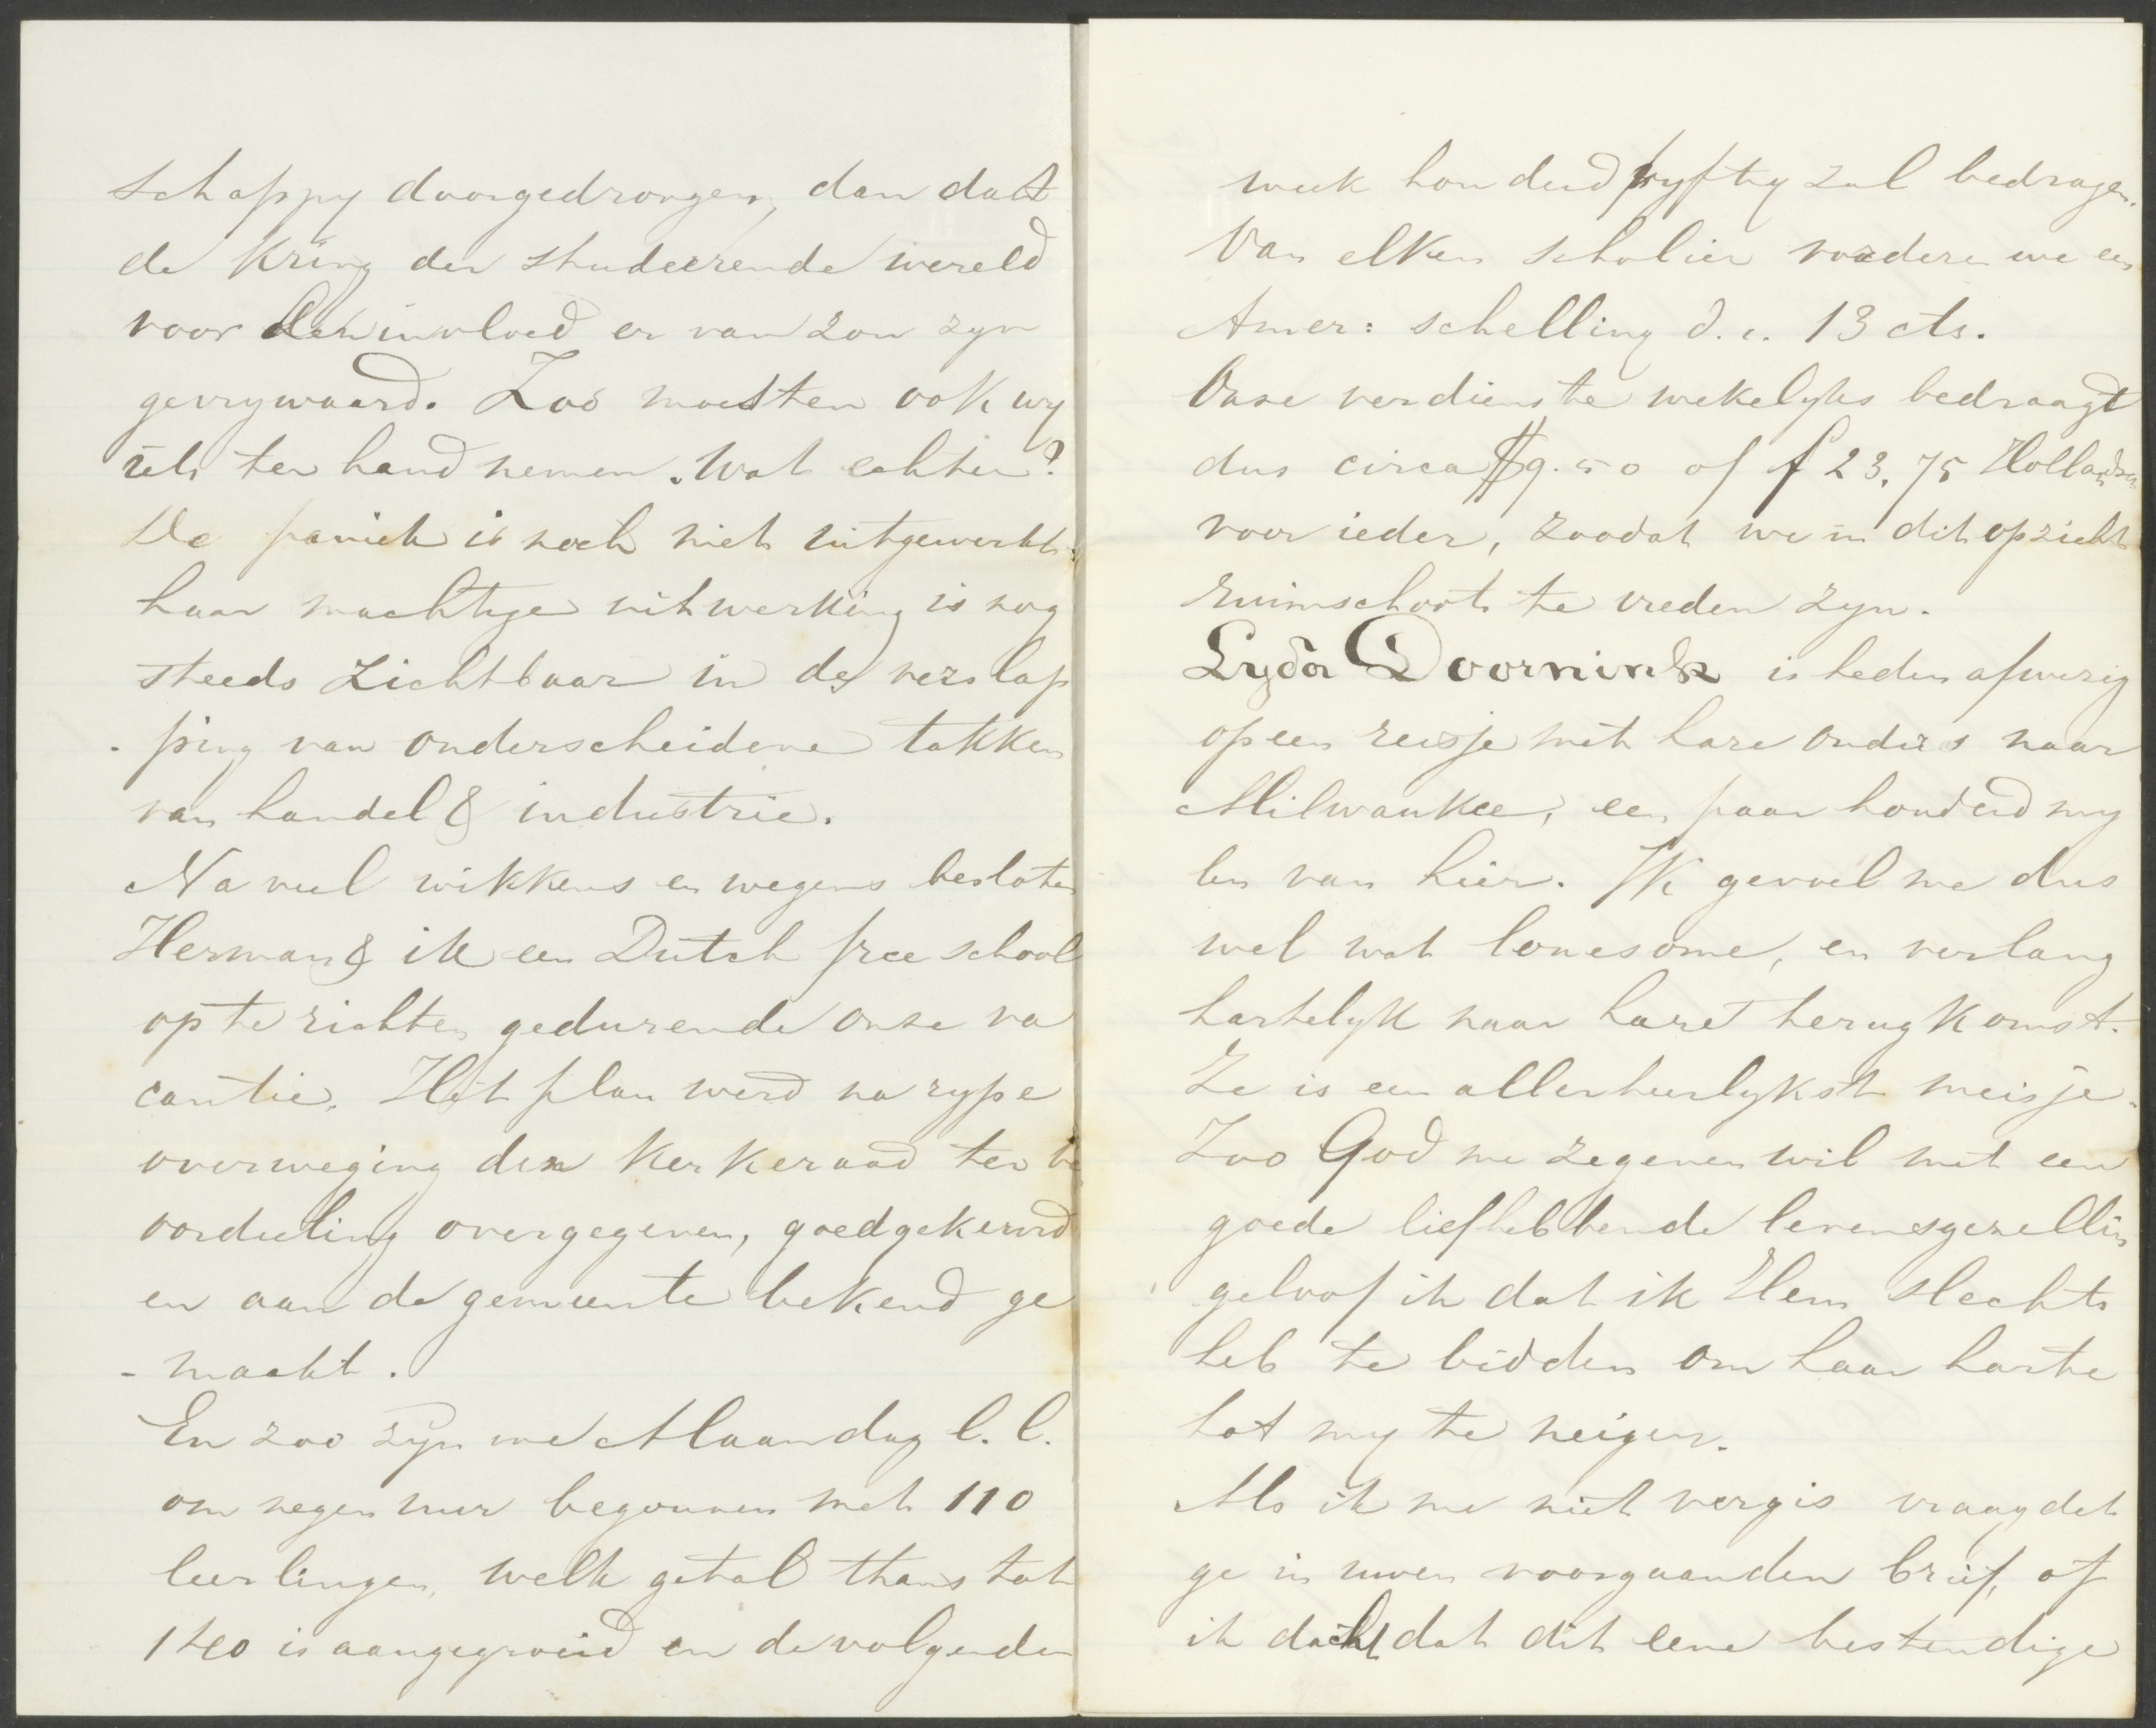 schappy doorgedrongen, dan dat
de kring der studeerende wereld
voor den invloed er van zou zyn
gevrywaard. Zoo moesten ook wy
iets ter hand nemen. Wat echter?
De paniek is noch niet uitgewerkt
haar machtige uitwerking is nog
steeds zichtbaar in de verslap
-ping van onderscheidene takken
van handel & industrie.
Na veel wikkens en wegens besloten
Herman & ik een Dutch free school
op te richten gedurende onze va
cantie. Het plan werd na rype
overweging den kerkeraad ter be
oordeeling overgegeven, goedgekeurd
en aan de gemeente bekend ge
-maakt.
En zoo zyn we Maandag l.l.
om negen uur begonnen met 110
leerlingen, welk getal thans tot
140 is aangegroeid en de volgenden
week honderd vyftig zal bedragen.
Van elken scholier vorderen we een
Amer: schelling d.i. 13 cts.
Onze verdienste wekelyks bedraagt
dus circa $9.50 of f 23,75 Hollandsch
voor ieder, zoodat we in dit opzicht
ruimschoots te vreden zyn.
Lyda Doornink is heden afwezig
op een reisje met hare ouders naar
Milwaukee, een paar honderd my
len van hier. Ik gevoel me dus
wel wat lonesome, en verlang
hartelyk naar hare terugkomst.
Ze is een allerheerlykst meisje.
Zoo God me zegenen wil met een
goede liefhebbende levensgezellin
geloof ik dat ik Hem slechts
heb te bidden om haar harte
tot my te neigen.
Als ik me niet vergis vraagdet
ge in uwen voorgaanden brief, of
ik dacht dat dit eene bestendige